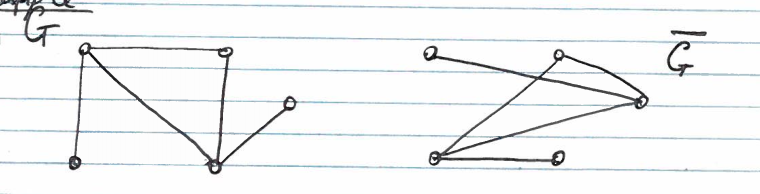 G
G̅